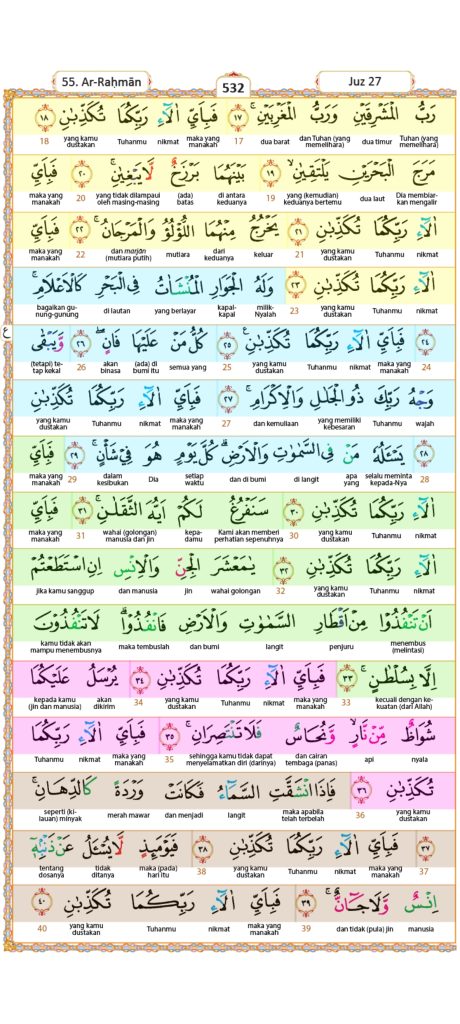 55. Ar-Raḥmān
532
Juz 27
رَبُّ الْمَشْرِقَيْنِ وَرَبُّ الْمَغْرِبَيْنِۚ ١٧ فَبِاَيِّ اٰلَاۤءِ رَبِّكُمَا تُكَذِّبٰنِ ١٨
Tuhan (yang memelihara) dua timur dan Tuhan (yang memelihara) dua barat 17 maka yang manakah nikmat Tuhanmu yang kamu dustakan 18
مَرَجَ الْبَحْرَيْنِ يَلْتَقِيٰنِۙ ١٩ بَيْنَهُمَا بَرْزَخٌ لَّا يَبْغِيٰنِۚ ٢٠ فَبِاَيِّ
Dia membiarkan mengalir dua laut yang (kemudian) keduanya bertemu 19 di antara keduanya (ada) batas yang tidak dilampaui oleh masing-masing 20 maka yang manakah
اٰلَاۤءِ رَبِّكُمَا تُكَذِّبٰنِ ٢١ يَخْرُجُ مِنْهُمَا اللُّؤْلُؤُ وَالْمَرْجَانُۚ ٢٢ فَبِاَيِّ
nikmat Tuhanmu yang kamu dustakan 21 keluar dari keduanya mutiara dan marjān (mutiara putih) 22 maka yang manakah
اٰلَاۤءِ رَبِّكُمَا تُكَذِّبٰنِ ٢٣ وَلَهُ الْجَوَارِ الْمُنْشَاٰتُ فِى الْبَحْرِ كَالْاَعْلَامِۚ
nikmat Tuhanmu yang kamu dustakan 23 milik-Nyalah kapal-kapal yang berlayar di lautan bagaikan gunung-gunung
ع
٢٤ فَبِاَيِّ اٰلَاۤءِ رَبِّكُمَا تُكَذِّبٰنِ ٢٥ كُلُّ مَنْ عَلَيْهَا فَانٍۖ ٢٦ وَّيَبْقٰى
24 maka yang manakah nikmat Tuhanmu yang kamu dustakan 25 semua yang (ada) di bumi itu akan binasa 26 (tetapi) tetap kekal
وَجْهُ رَبِّكَ ذُو الْجَلٰلِ وَالْاِكْرَامِۚ ٢٧ فَبِاَيِّ اٰلَاۤءِ رَبِّكُمَا تُكَذِّبٰنِ
wajah Tuhanmu yang memiliki kebesaran dan kemuliaan 27 maka yang manakah nikmat Tuhanmu yang kamu dustakan
٢٨ يَسْـَٔلُهٗ مَنْ فِى السَّمٰوٰتِ وَالْاَرْضِۗ كُلَّ يَوْمٍ هُوَ فِيْ شَأْنٍۚ ٢٩ فَبِاَيِّ
28 selalu meminta kepada-Nya apa yang di langit dan di bumi setiap waktu Dia dalam kesibukan 29 maka yang manakah
اٰلَاۤءِ رَبِّكُمَا تُكَذِّبٰنِ ٣٠ سَنَفْرُغُ لَكُمْ اَيُّهَ الثَّقَلٰنِۚ ٣١ فَبِاَيِّ
nikmat Tuhanmu yang kamu dustakan 30 Kami akan memberi perhatian sepenuhnya kepadamu wahai (golongan) manusia dan jin 31 maka yang manakah
اٰلَاۤءِ رَبِّكُمَا تُكَذِّبٰنِ ٣٢ يٰمَعْشَرَ الْجِنِّ وَالْاِنْسِ اِنِ اسْتَطَعْتُمْ
nikmat Tuhanmu yang kamu dustakan 32 wahai golongan jin dan manusia jika kamu sanggup
اَنْ تَنْفُذُوْا مِنْ اَقْطَارِ السَّمٰوٰتِ وَالْاَرْضِ فَانْفُذُوْاۗ لَا تَنْفُذُوْنَ
menembus (melintasi) penjuru langit dan bumi maka tembuslah kamu tidak akan mampu menembusnya
اِلَّا بِسُلْطٰنٍۚ ٣٣ فَبِاَيِّ اٰلَاۤءِ رَبِّكُمَا تُكَذِّبٰنِ ٣٤ يُرْسَلُ عَلَيْكُمَا
kecuali dengan kekuatan (dari Allah) 33 maka yang manakah nikmat Tuhanmu yang kamu dustakan 34 akan dikirim kepada kamu (jin dan manusia)
شُوَاظٌ مِّنْ نَّارٍۙ وَّنُحَاسٌ فَلَا تَنْتَصِرَانِۚ ٣٥ فَبِاَيِّ اٰلَاۤءِ رَبِّكُمَا
nyala api dan cairan tembaga (panas) sehingga kamu tidak dapat menyelamatkan diri (darinya) 35 maka yang manakah nikmat Tuhanmu
تُكَذِّبٰنِ ٣٦ فَاِذَا انْشَقَّتِ السَّمَاۤءُ فَكَانَتْ وَرْدَةً كَالدِّهَانِۚ
yang kamu dustakan 36 maka apabila telah terbelah langit dan menjadi merah mawar seperti (kilauan) minyak
٣٧ فَبِاَيِّ اٰلَاۤءِ رَبِّكُمَا تُكَذِّبٰنِ ٣٨ فَيَوْمَىِٕذٍ لَّا يُسْـَٔلُ عَنْ ذَنْۢبِهٖٓ
37 maka yang manakah nikmat Tuhanmu yang kamu dustakan 38 maka (pada) hari itu tidak ditanya tentang dosanya
اِنْسٌ وَّلَا جَاۤنٌّۚ ٣٩ فَبِاَيِّ اٰلَاۤءِ رَبِّكُمَا تُكَذِّبٰنِ ٤٠
manusia dan tidak (pula) jin 39 maka yang manakah nikmat Tuhanmu yang kamu dustakan 40